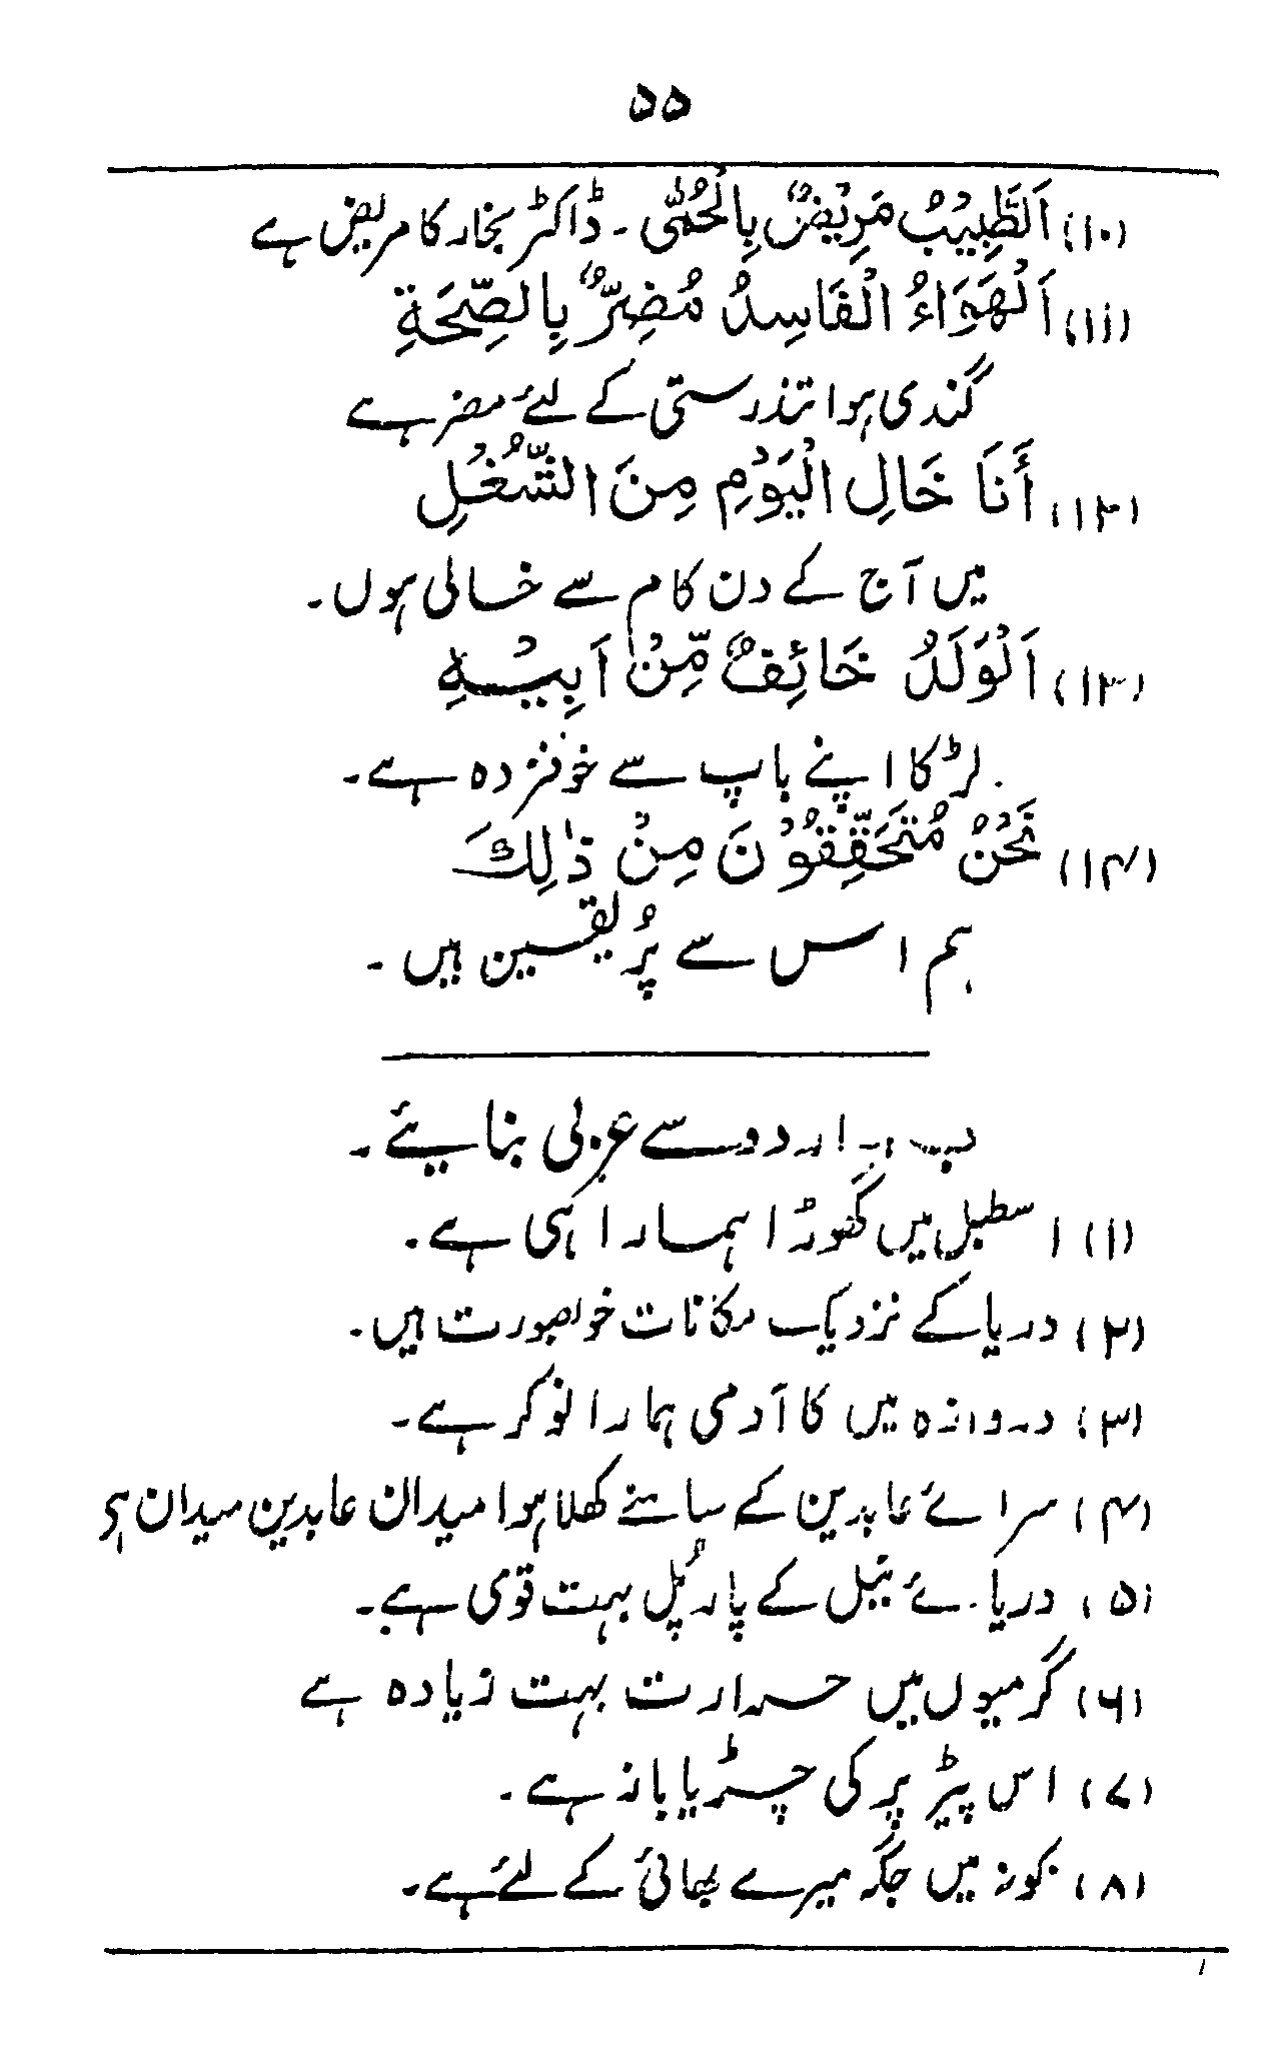 ۵۵
(۱۰) اَلطَّبِيْبُ مَرِيْضٌ بِالْحُمّٰى ۔ ڈاکٹر بخار کا مریض ہے
(۱۱) اَلْهَوَاءُ الْفَاسِدُ مُضِرٌّ بِالصِّحَةِ
گندی ہوا تندرستی کے لئے مضر ہے
(۱۲) أَنَا خَالِ الْيَوْمِ مِنَ الشُّغْلِ
میں آج کے دن کام سے خالی ہوں۔
(۱۳) اَلْوَلَدُ خَائِفٌ مِّنْ اَبِيْهِ
لڑکا اپنے باپ سے خوفزدہ ہے۔
(۱۴) نَحْنُ مُتَحَقِّقُوْنَ مِنْ ذٰلِكَ
ہم اس سے پُر یقین ہیں ۔
ب :۔ اردو سے عربی بنایئے ۔
(۱) اسطبل میں گھوڑا ہمارا ہی ہے ۔
(۲) دریا کے نزدیک مکانات خوبصورت ہیں ۔
(۳) دروازہ میں کا آدمی ہمارا نوکر ہے۔
(۴) سرائے عابدین کے سامنے کھلا ہوا میدان عابدین میدان ہی
(۵) دریائے نیل کے پار پُل بہت قوی ہے۔
(۶) گرمیوں میں حرارت بہت زیادہ ہے
(۷) اس پیڑ پر کی چڑیا باز ہے ۔
(۸) کونہ میں جگہ میرے بھائی کے لئے ہے۔